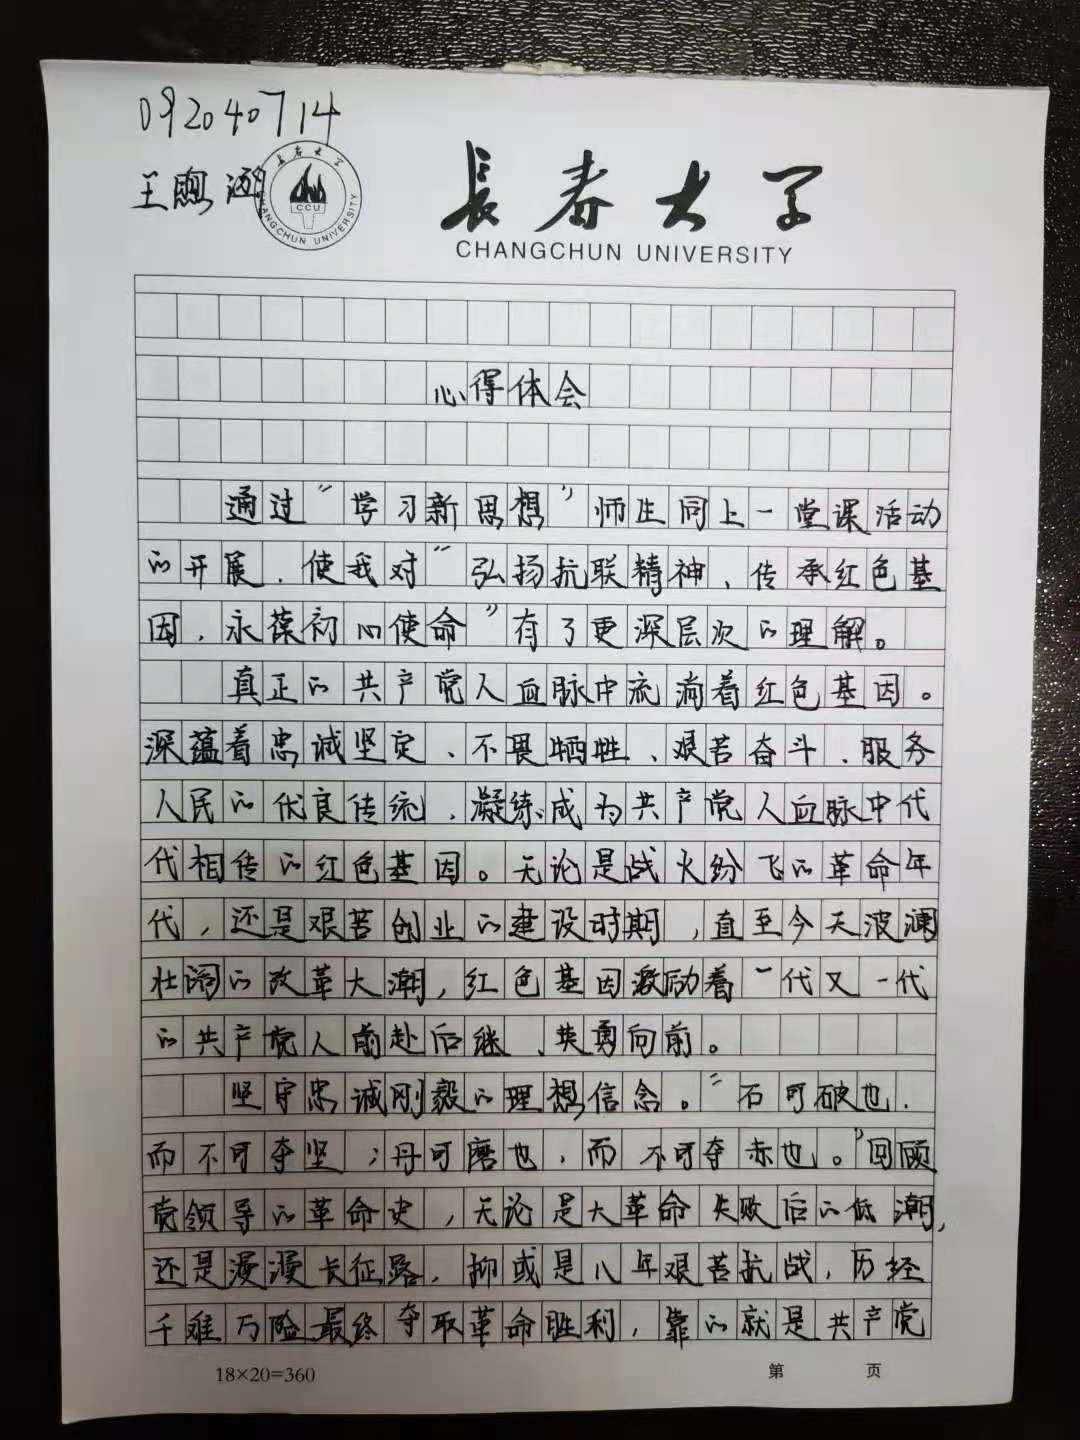 092040714
王
長春大学
CHANGCHUN UNIVERSITY
長春大学
CCU
CHANGCHUN UNIVERSITY
心得体会
通过“学习新思想”师生同上一堂课活动
的开展，使我对“弘扬抗联精神、传承红色基
因，永葆初心使命”有了更深层次的理解。
真正的共产党人血脉中流淌着红色基因。
深蕴着忠诚坚定、不畏牺牲、艰苦奋斗、服务
人民的优良传统，凝练成为共产党人血脉中代
代相传的红色基因。无论是战火纷飞的革命年
代，还是艰苦创业的建设时期，直至今天波澜
壮阔的改革大潮，红色基因激励着一代又一代
的共产党人前赴后继、英勇向前。
坚守忠诚刚毅的理想信念。“石可破也，
而不可夺坚；丹可磨也，而不可夺赤也。”回顾
党领导的革命史，无论是大革命失败后的低潮，
还是漫漫长征路，抑或是八年艰苦抗战，历经
千难万险最终夺取革命胜利，靠的就是共产党
18×20=360
第 页